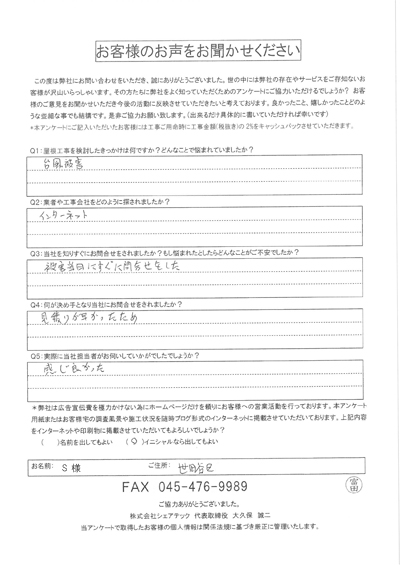 お客様のお声をお聞かせください
この度は弊社にお問い合わせをいただき、誠にありがとうございました。世の中には弊社の存在やサービスをご存知ないお
客様が沢山いらっしゃいます。その方たちに弊社をよく知っていただくためのアンケートにご協力いただけるでしょうか？ お客
様のご意見をお聞かせいただき今後の活動に反映させていただきたいと考えております。良かったこと、嬉しかったことどのよ
うな些細な事でも結構です。是非ご協力お願い致します。(出来るだけ具体的に書いていただければ幸いです)
*本アンケートにご記入いただいたお客様には工事ご用命時に工事金額(税抜き)の2%をキャッシュバックさせていただきます。
Q1:屋根工事を検討したきっかけは何ですか？どんなことで悩まれていましたか？
台風被害
Q2:業者や工事会社をどのように探されましたか？
インターネット
Q3:当社を知りすぐにお問合せをされましたか？もし悩まれたとしたらどんなことがご不安でしたか？
被害当日にすぐに問合せをした
Q4:何が決め手となり当社にお問合せをされましたか？
見積りが早かったため
Q5:実際に当社担当者がお伺いしていかがでしたでしょうか？
感じ良かった
*弊社は広告宣伝費を極力かけない為にホームページだけを頼りにお客様への営業活動を行っております。本アンケート
用紙またはお客様宅の調査風景や施工状況を随時ブログ形式のインターネットに掲載させていただいております。上記内容
をインターネットや印刷物に掲載させていただいてもよろしいでしょうか？
( )名前を出してもよい ( ○ )イニシャルなら出してもよい
お名前: S 様 ご住所: 世田谷区
FAX 045-476-9989
富田
ご協力ありがとうございました。
株式会社シェアテック 代表取締役 大久保 誠二
当アンケートで取得したお客様の個人情報は関係法規に基づき厳正に管理いたします。